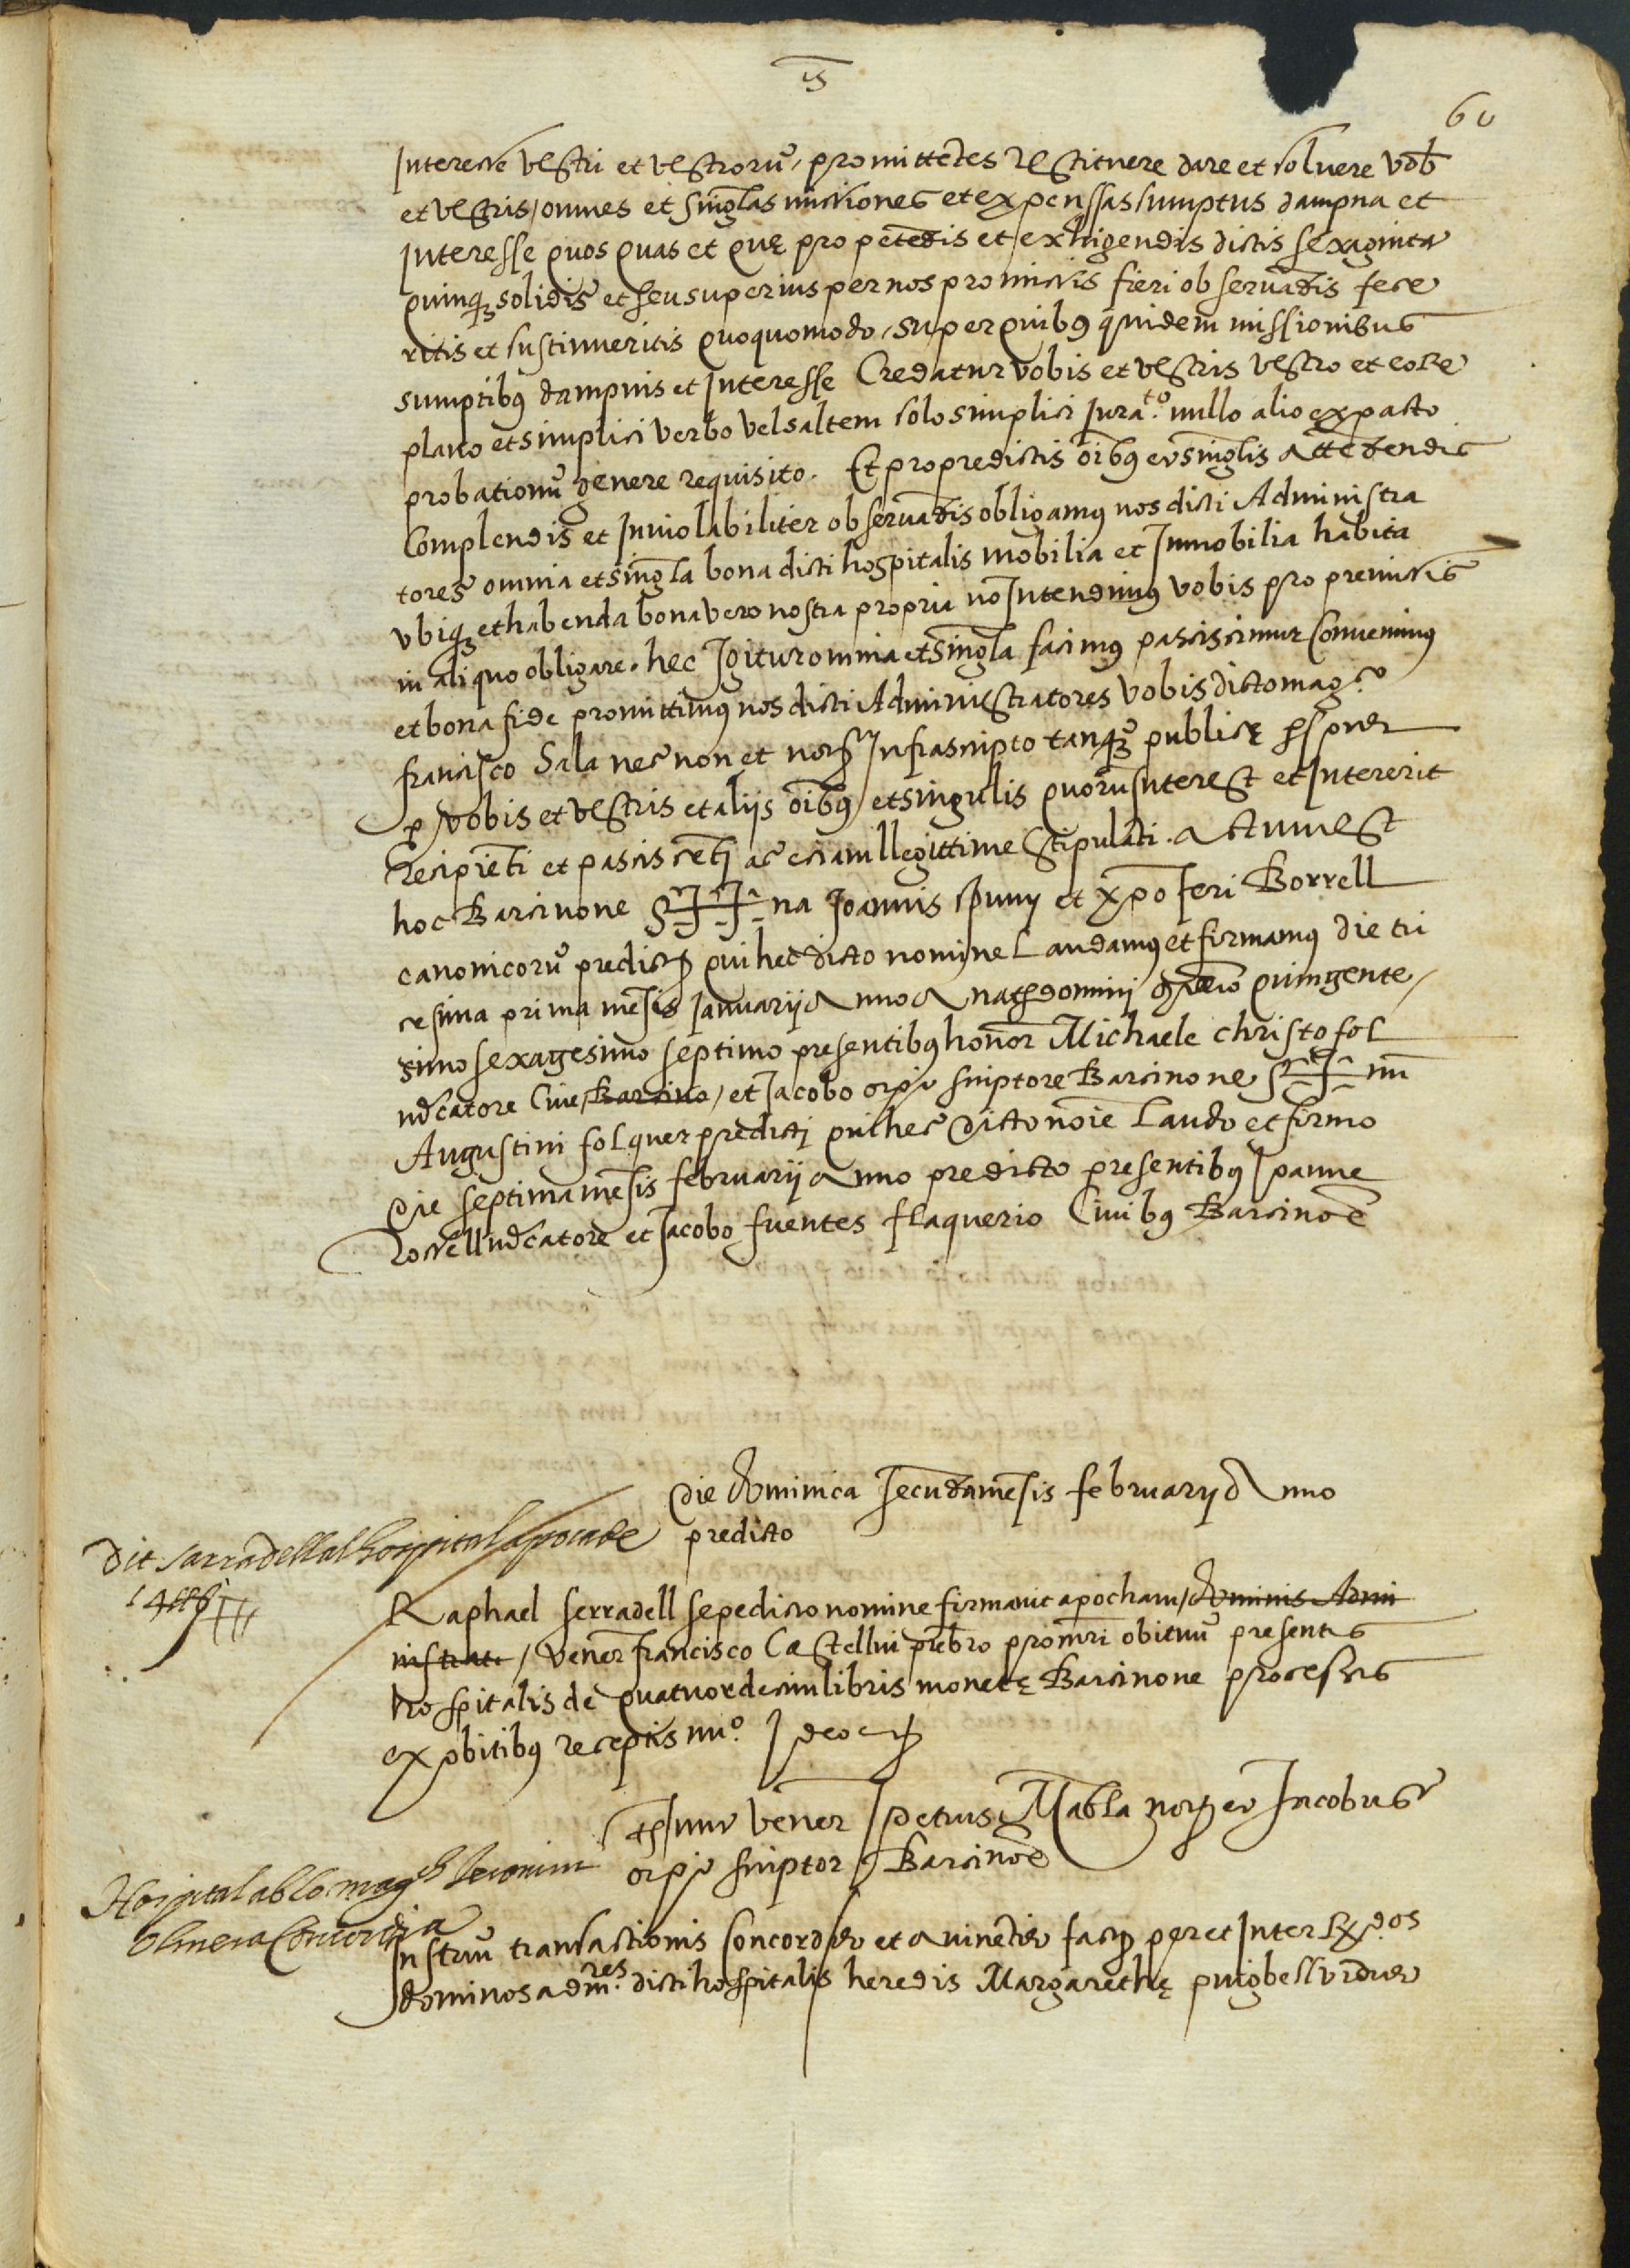 60
Interesse vestri et vestrorū, promittētes restituere dare et soluere vob̄
et vestris, omnes et singl̄as missiones et expenssas sumptus dampna et
Interesse quos quas et quę pro petēdis et exhigendis dictis sexaginta
quinq3 solidis et seu superius per nos promissis fieri obseruādis fece
ritis et sustinueritis quoquomodo, super quibꝯ quidem missionibus
sumptibꝯ dampnis et Interesse Credatur vobis et vestris vestro et eoR
plano et simplici verbo vel saltem solo simplici Jura.to nullo alio expacto
probationū genere requisito. Et pro predictis oībꝯ et singl̄is attēdendis
Complendis et Inviolabiliter obseruādis obligamꝯ nos dicti Administra
tores omnia et singl̄a bona dicti hospitalis mobilia et Inmobilia habita
vbiq3 et habenda bona vero nostra propria nō Intendimꝯ vobis pro premissis
in aliquo obligare. hec Igitur omnia et singl̄a facimꝯ pasciscimur Conuenimꝯ
et bona fide promittimꝯ nos dicti Administratores vobis dicto mag.co
francisco Sala nec non et notº Infrascripto tanq3 publicę psone
p vobis et vestris et aliis oībꝯ et singulis quorū Interest et Intererit
Recipiēti et pasciscēti ac etiam llegittime Stipulāti. Actum est
hoc Barcinone S na Joannis Puny et xpōferi Borrell
canonicorū predictoꝝ qui hec dicto nomine Laudamꝯ et firmamꝯ die tri
cesima prima mēsis Januarii Anno A nat domini millō quingente
simo sexagesimo septimo presentibꝯ honor Michaele christofol
m̄catore Ciue, Barcino, et Jacobo orpi scriptore Barcinone S nū
Augustini folquer predicti qui hec dicto noīe Laudo et firmo
die septima mēsis februarii Anno predicto presentibꝯ Joanne
Rossell m̄catore et Jacobo fuentes flaquerio Ciuibꝯ Barcinoē
die dominica secūda mēsis februarii Anno
predicto
Dit sarradell al hospital apoca de
14 ll
Raphael serradell sepedicto nomine firmauit apocham, dominis Admi
nistrat, Vener francisco Castellui prēbro procuri obituū presentis
hospitalis de quatuordecim libris monetę Barcinone processis
ex obitibꝯ receptis nuº. Ideo etc
Ts sunt vener Petrus Mabla notº et Jacobus
orpi scriptor Barcinoē
Hospital ab lo magch Jeronim
Olmera Concordia
Instrū transactionis Concordie et auinētie factꝫ per et Inter Rdos
dominos admres. dicti hospitalis heredis Margarethę puigbesluidue